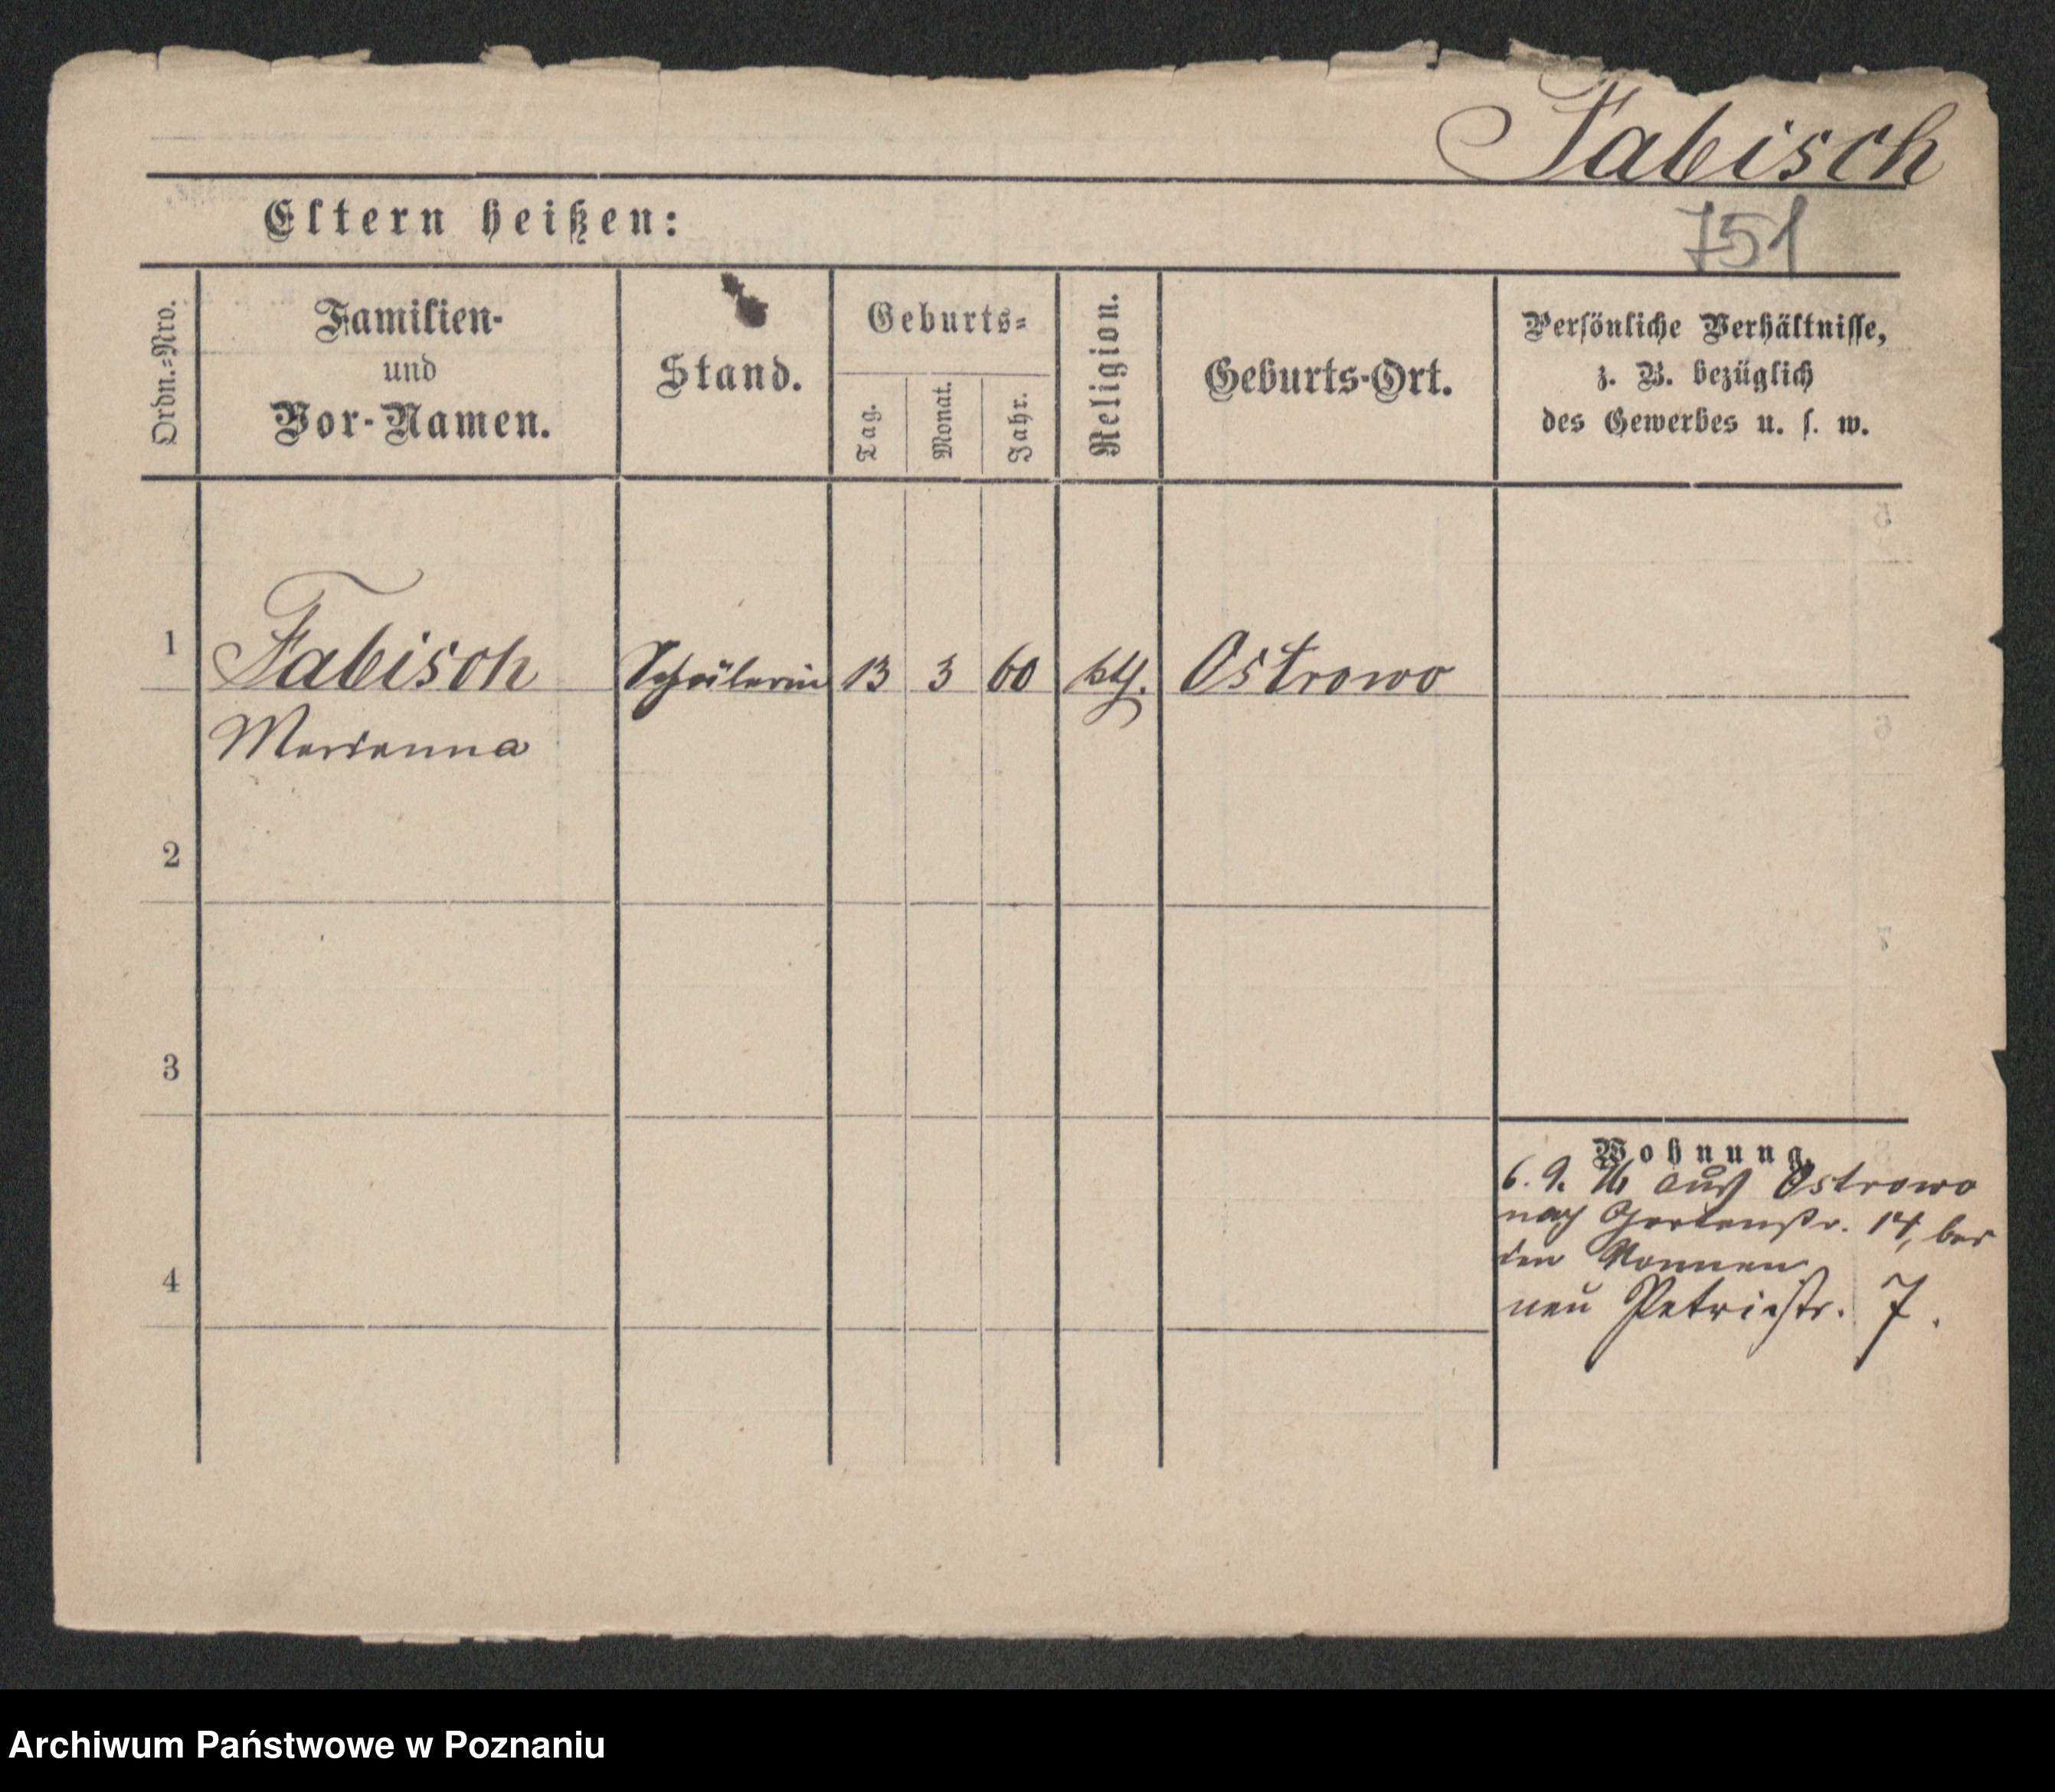 Fabisch
Eltern heißen:
751
Ordn.=Nro.
Familien-
und
Vor-Namen.
Stand.
Geburts=
Tag.
Monat.
Jahr.
Religion.
Geburts-Ort.
Persönliche Verhältnisse,
z. B. bezüglich
des Gewerbes u. s. w.
1
Fabisch Schülerin 13 3 60 kth. Ostrowo
Marianna
2
3
4
Wohnung.
6. 9. 76 aus Ostrowo
nach Gartenstr. 14, bei
den Nonnen
neu Petristr. 7.
Archiwum Państwowe w Poznaniu